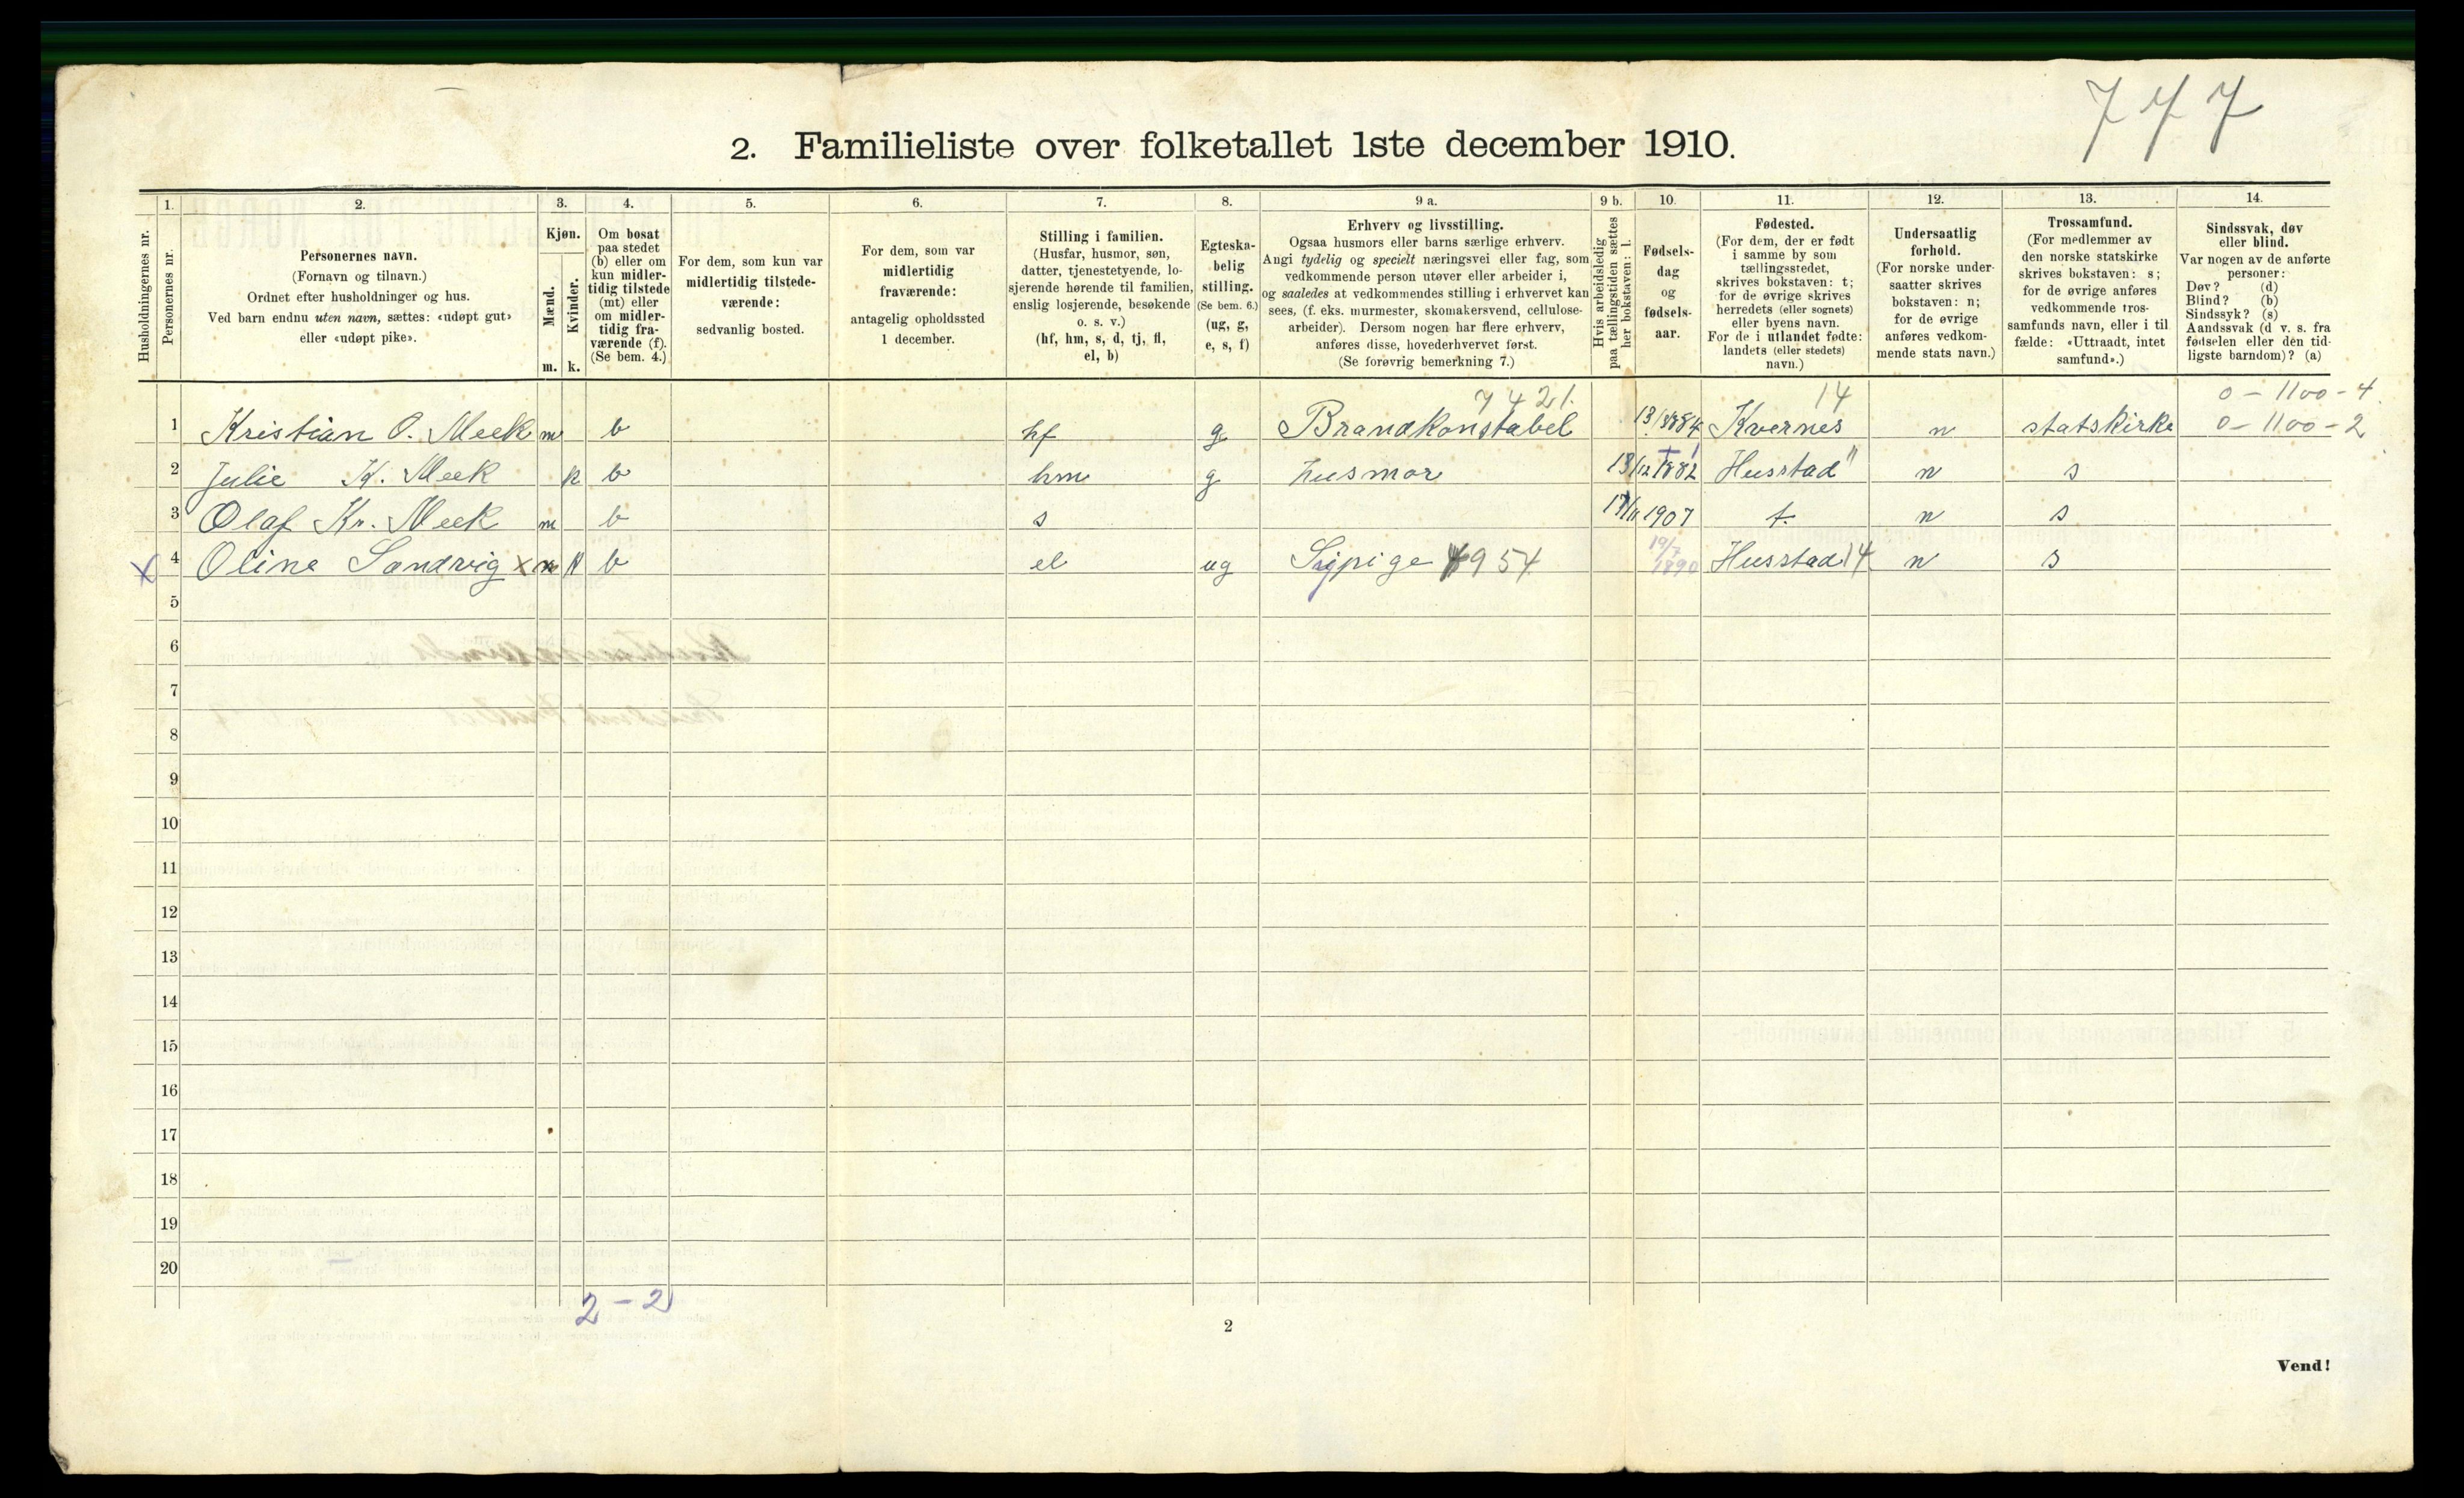 777
2. Familieliste over folketallet 1ste december 1910.
Husholdningernes nr.
1.
Personernes nr.
2.
Personernes navn.
(Fornavn og tilnavn.)
Ordnet efter husholdninger og hus.
Ved barn endnu uten navn, sættes: «udøpt gut»
eller «udøpt pike».
3.
Kjøn.
Mænd.
Kvinder.
m. k.
4.
Om bosat
paa stedet
(b) eller om
kun midler-
tidig tilstede
(mt) eller
om midler-
tidig fra-
værende (f).
(Se bem. 4.)
5.
For dem, som kun var
midlertidig tilstede-
værende:
sedvanlig bosted.
6.
For dem, som var
midlertidig
fraværende:
antagelig opholdssted
1 december.
7.
Stilling i familien.
(Husfar, husmor, søn,
datter, tjenestetyende, lo-
sjerende hørende til familien,
enslig losjerende, besøkende
o. s. v.)
(hf, hm, s, d, tj, fl,
el, b)
8.
Egteska-
belig
stilling.
(Se bem. 6.)
(ug, g,
e, s, f)
9 a.
Erhverv og livsstilling.
Ogsaa husmors eller barns særlige erhverv.
Angi tydelig og specielt næringsvei eller fag, som
vedkommende person utøver eller arbeider i,
og saaledes at vedkommendes stilling i erhvervet kan
sees, (f. eks. murmester, skomakersvend, cellulose-
arbeider). Dersom nogen har flere erhverv,
anføres disse, hovederhvervet først.
(Se forøvrig bemerkning 7.)
9 b.
Hvis arbeidsledig
paa tællingstiden sættes
her bokstaven: l.
10.
Fødsels-
dag
og
fødsels-
aar.
11.
Fødested.
(For dem, der er født
i samme by som
tællingsstedet,
skrives bokstaven: t;
for de øvrige skrives
herredets (eller sognets)
eller byens navn.
For de i utlandet fødte:
landets (eller stedets)
navn.)
12.
Undersaatlig
forhold.
(For norske under-
saatter skrives
bokstaven: n;
for de øvrige
anføres vedkom-
mende stats navn.)
13.
Trossamfund.
(For medlemmer av
den norske statskirke
skrives bokstaven: s;
for de øvrige anføres
vedkommende tros-
samfunds navn, eller i til
fælde: «Uttraadt, intet
samfund».)
14.
Sindssvak, døv
eller blind.
Var nogen av de anførte
personer:
Døv? (d)
Blind? (b)
Sindssyk? (s)
Aandssvak (d v. s. fra
fødselen eller den tid-
ligste barndom)? (a)
7421. 14 0-1100-4.
1 Kristian O. Meek m b hf g Brandkonstabel Kvernes n statskirke 0-1100-2
2 Julie K. Meek k b hm g husmor 13/12 1882 Husstad " n s
3 Olaf Kr. Meek m b s 17/11 1907 t. n s
x 4 Oline Sandvig x k b el ug Sypige 954 19/7 1890 Husstad 14 n s
5
6
7
8
9
10
11
12
13
14
15
16
17
18
19
20
2-2
2
Vend!